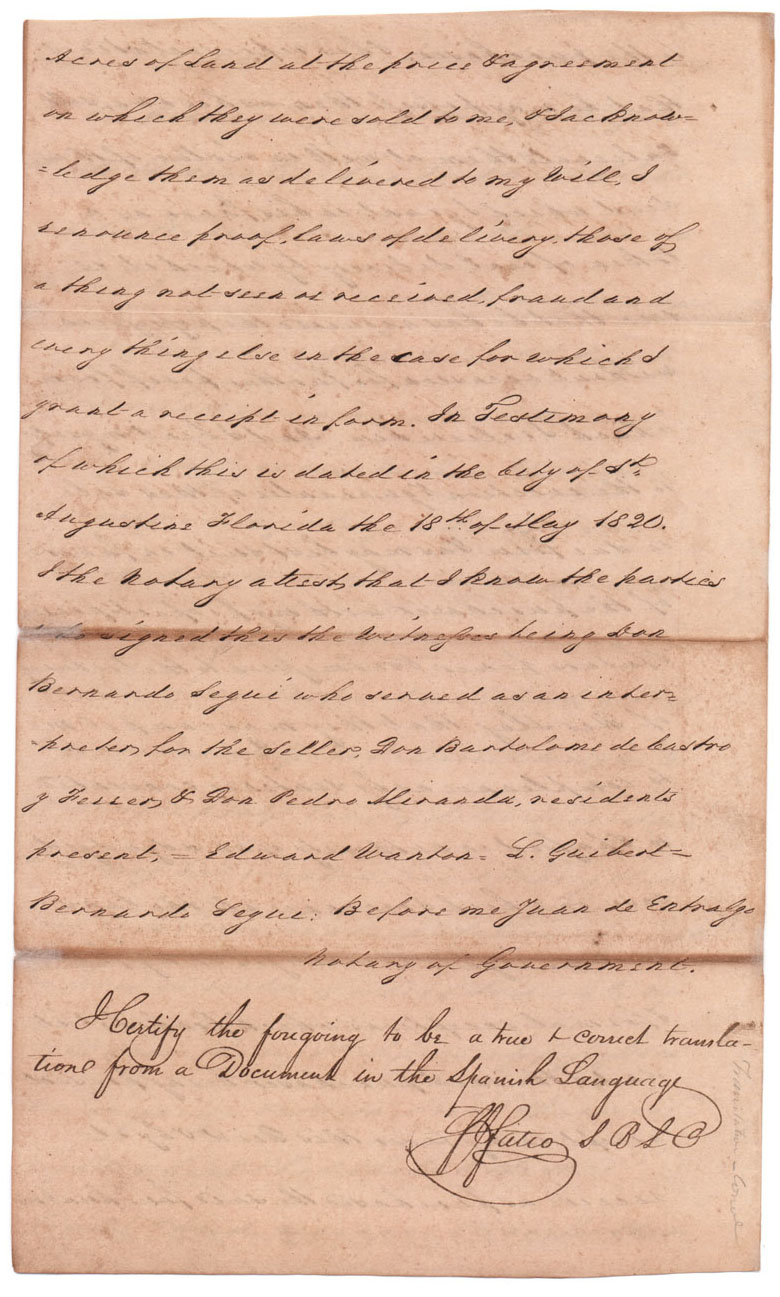 Acres of Land at the price & agreement
on which they were sold to me, & I acknow=
=ledge them as delivered to my Will, I
renounce proof, laws of delivery, those of
a thing not seen or received, fraud and
every thing else in the case for which I
grant a receipt in form. In Testimony
of which this is dated in the City of St.
Augustine Florida the 18th of May 1820.
I the Notary attest, that I know the parties
who signed this the Witnesses being Don
Bernardo Segui who served as an inter=
preter, for the seller, Don Bartolome de Castro
y Ferrer, & Don Pedro Miranda, residents
present, = Edward Wanton = L. Guibert =
Bernardo Segui: Before me Juan de Entralgo
Notary of Government.
I Certify the foregoing to be a true & correct transla-
tion from a Document in the Spanish Language
Fatio S B L C
Translation